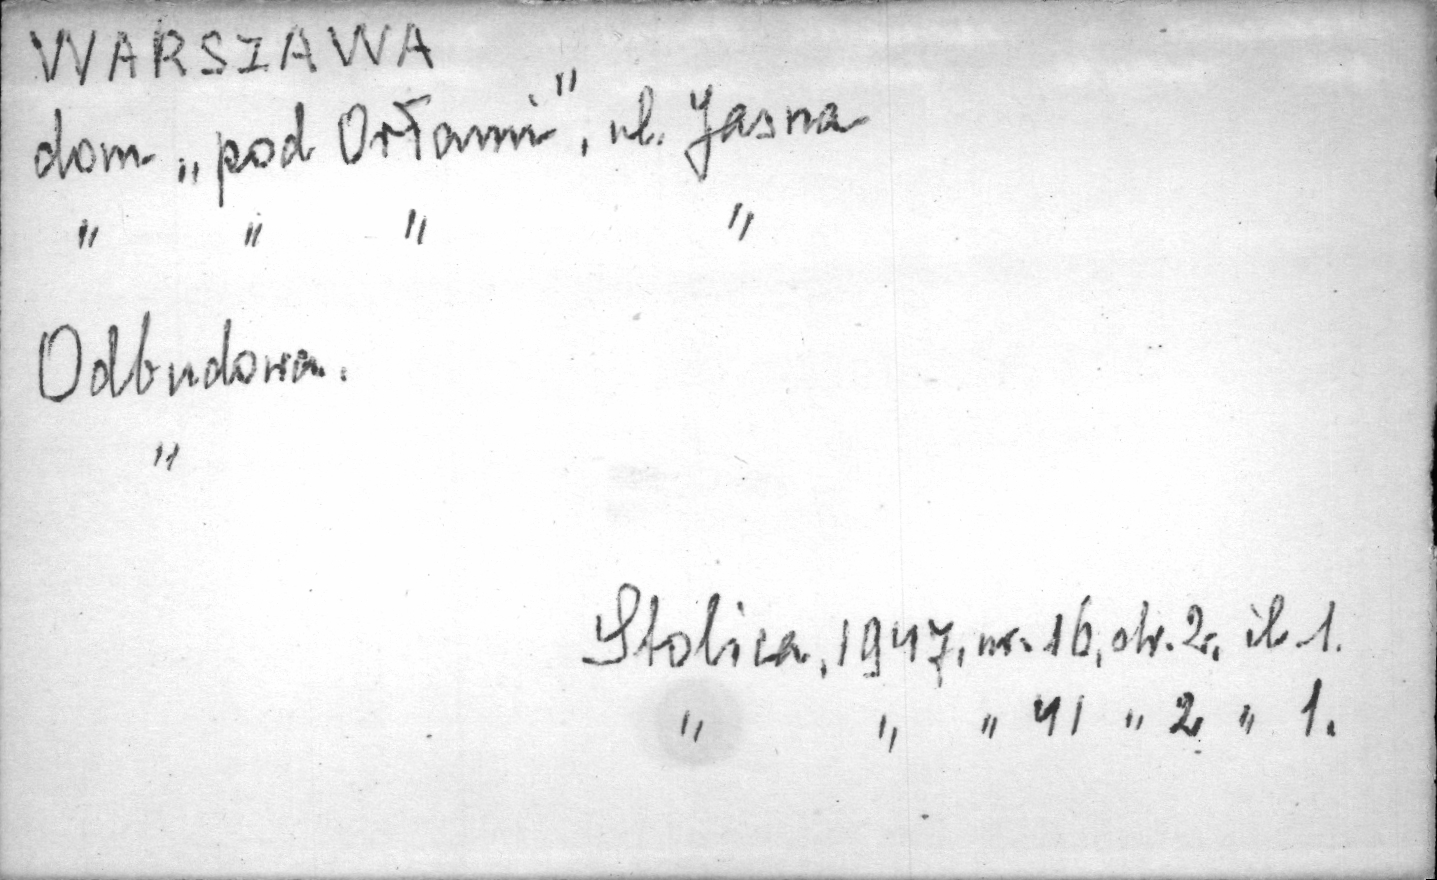 WARSZAWA
dom „pod Orłami”, ul. Jasna
" " " "
Odbudowa.
"
Stolica, 1947, nr. 16, str. 2, il 1.
" " " 41 " 2 " 1.